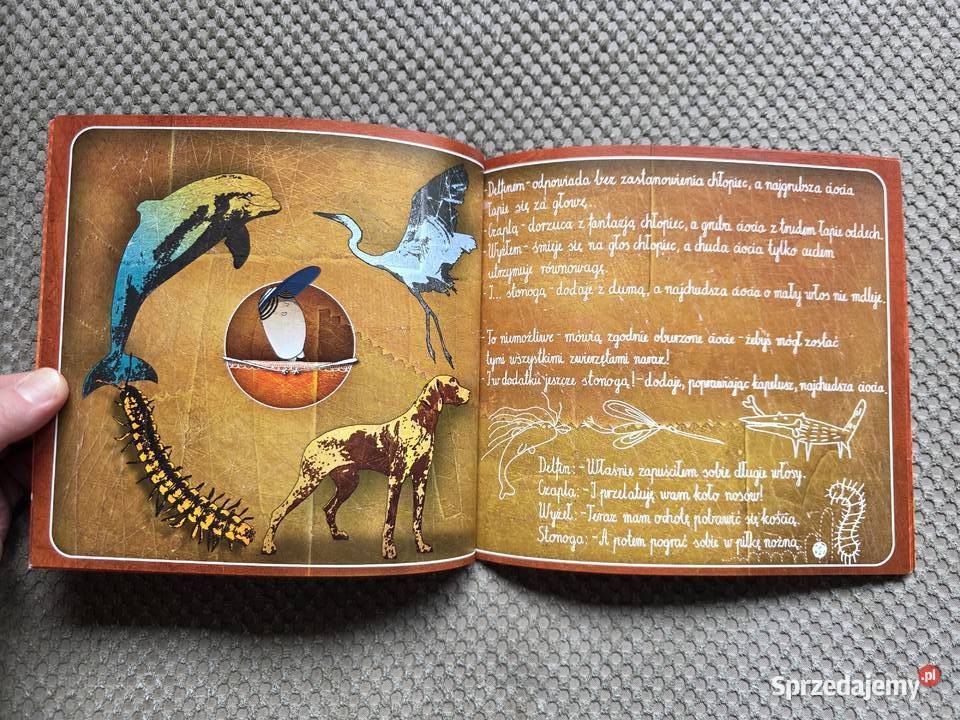 - Delfinem - odpowiada bez zastanowienia chłopiec, a najgrubsza ciocia
łapie się za głowę...
- Czaplą - dorzuca z fantazją chłopiec, a gruba ciocia z trudem łapie oddech.
- Wyżłem - śmieje się na głos chłopiec, a chuda ciocia tylko cudem
utrzymuje równowagę.
- I... stonogą - dodaje z dumą, a najchudsza ciocia o mały włos nie mdleje.
- To niemożliwe - mówią zgodnie oburzone ciocie - żebyś mógł zostać
tymi wszystkimi zwierzętami naraz!
- I w dodatku jeszcze stonogą! - dodaje, poprawiając kapelusz, najchudsza ciocia.
Delfin: - Właśnie zapuściłem sobie długie włosy.
Czapla: - I przelatuję wam koło nosów!
Wyżeł: - Teraz mam ochotę pobawić się kością.
Stonoga: - A potem pograć sobie w piłkę nożną.
Sprzedajemy.pl